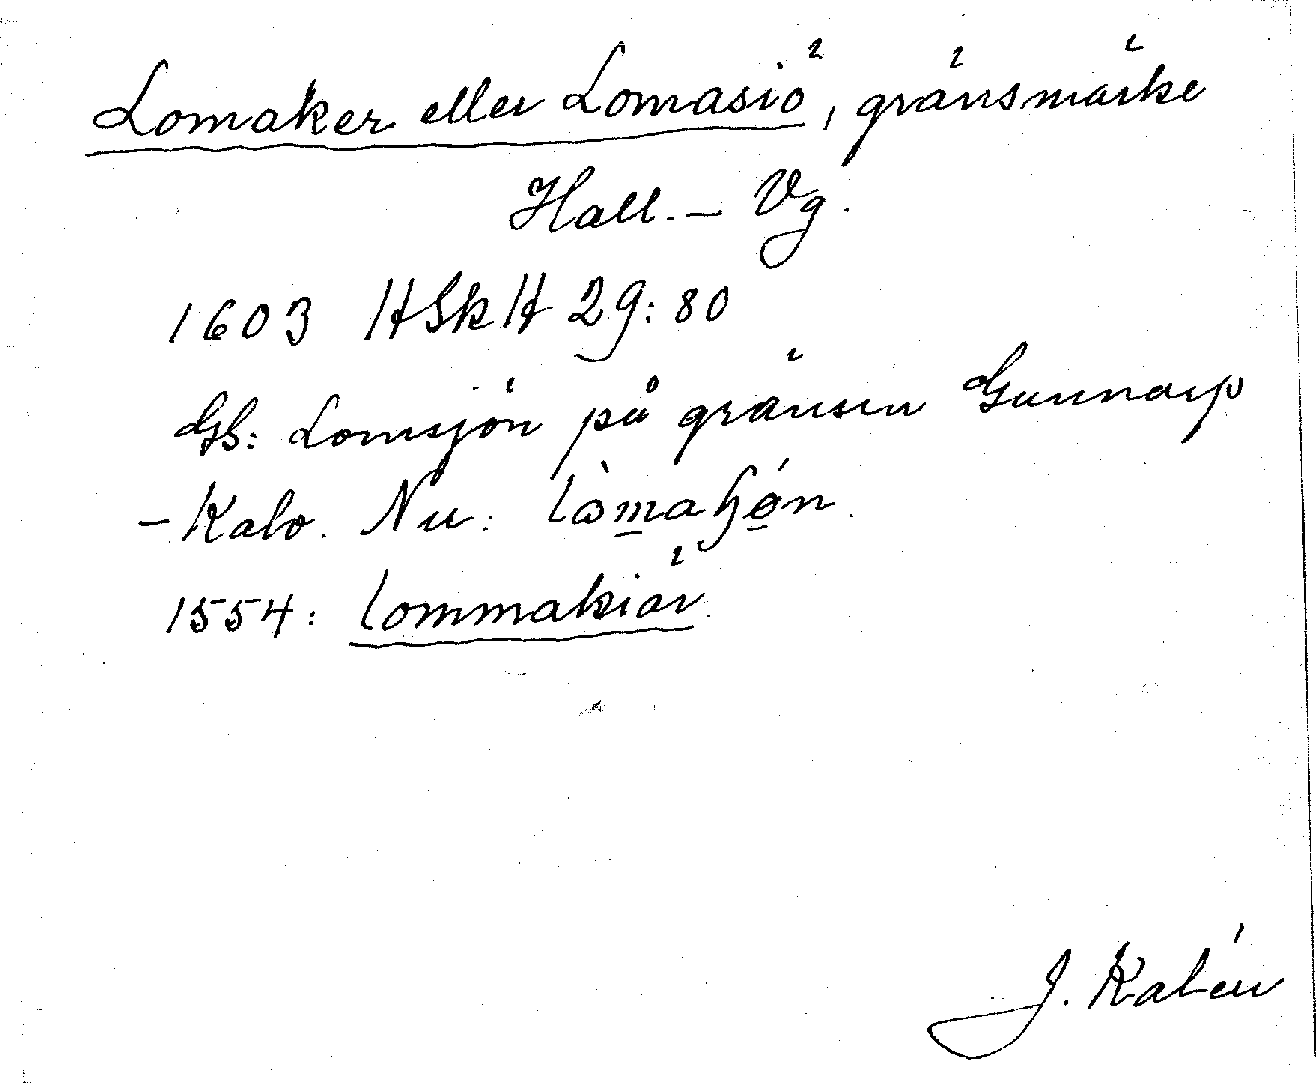 Lomaker eller Lomasiö, gränsmärke
Hall. – Vg.
1603 HSkH 29:80
GS: Lomsjön på gränsen Gunnarp
– Kalv. Nu:
1554: lommakiär.
J. Kalén